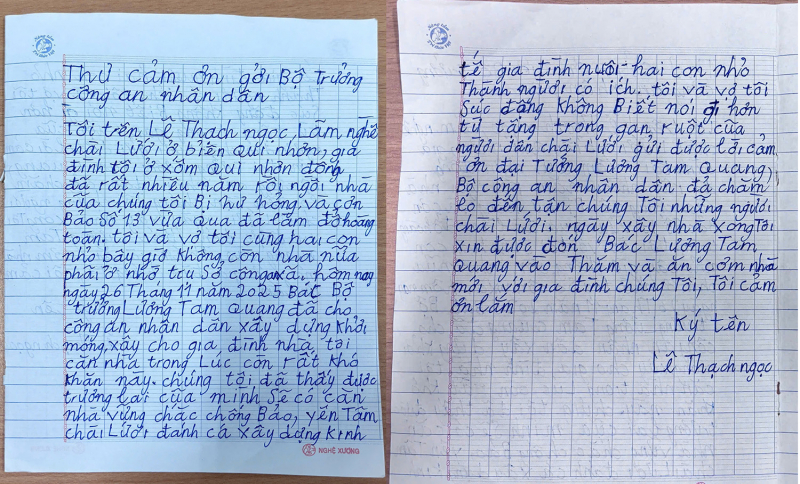 Thư cảm ơn gởi Bộ Trưởng
công an nhân dân
Tôi trên Lê Thạch ngọc Lãm nghề
chãi Lưới ở biển Qui nhơn, gia
đình tôi ở xóm Qui nhơn đông
đã rất nhiều năm rồi, ngôi nhà
của chúng tôi Bị hư hỏng. và cơn
Bảo Số 13 vừa qua đã lãm đỗ hoãng
toãn. tôi và vơ tôi cũng hai con
nhỏ bây giờ Không còn nhà nữa
phải ở nhờ trụ Sở công an xã. hôm nay
ngày 26 Tháng 11 năm 2025 Bác Bộ
trưởng Lương Tam Quang đã cho
công an nhân dân xây dựng Khởi
móng, xây cho gia đình nhà tôi
căn nhà trong Lúc còn rất Khó
Khăn này. chúng tôi đã thấy được
trưởng lai của mình Sẽ có căn
nhà vững chắc chống Bảo, yên Tâm
chãi Lưới đánh cá xây dựng Kinh
NGHỆ XƯƠNG
tế gia đình nuôi hai con nhỏ
Thành người có ích. tôi và vơ tôi
Sức động Không Biết nói gì hơn
từ tận trong gan ruột của
người dân chãi Lưới gửi được lời cảm
ơn đại Tướng Lương Tam Quang,
Bộ công an nhân dân đã chăm
lo đến tận chúng Tôi những người
chãi Lưới. ngày xây nhà xong Tôi
xin được đón Bác Lương Tam
Quang vào Thăm và ăn cơm nhà
mới với gia đình chúng Tôi, Tôi cảm
ơn lắm
Ký tên
Lê Thạch ngọc